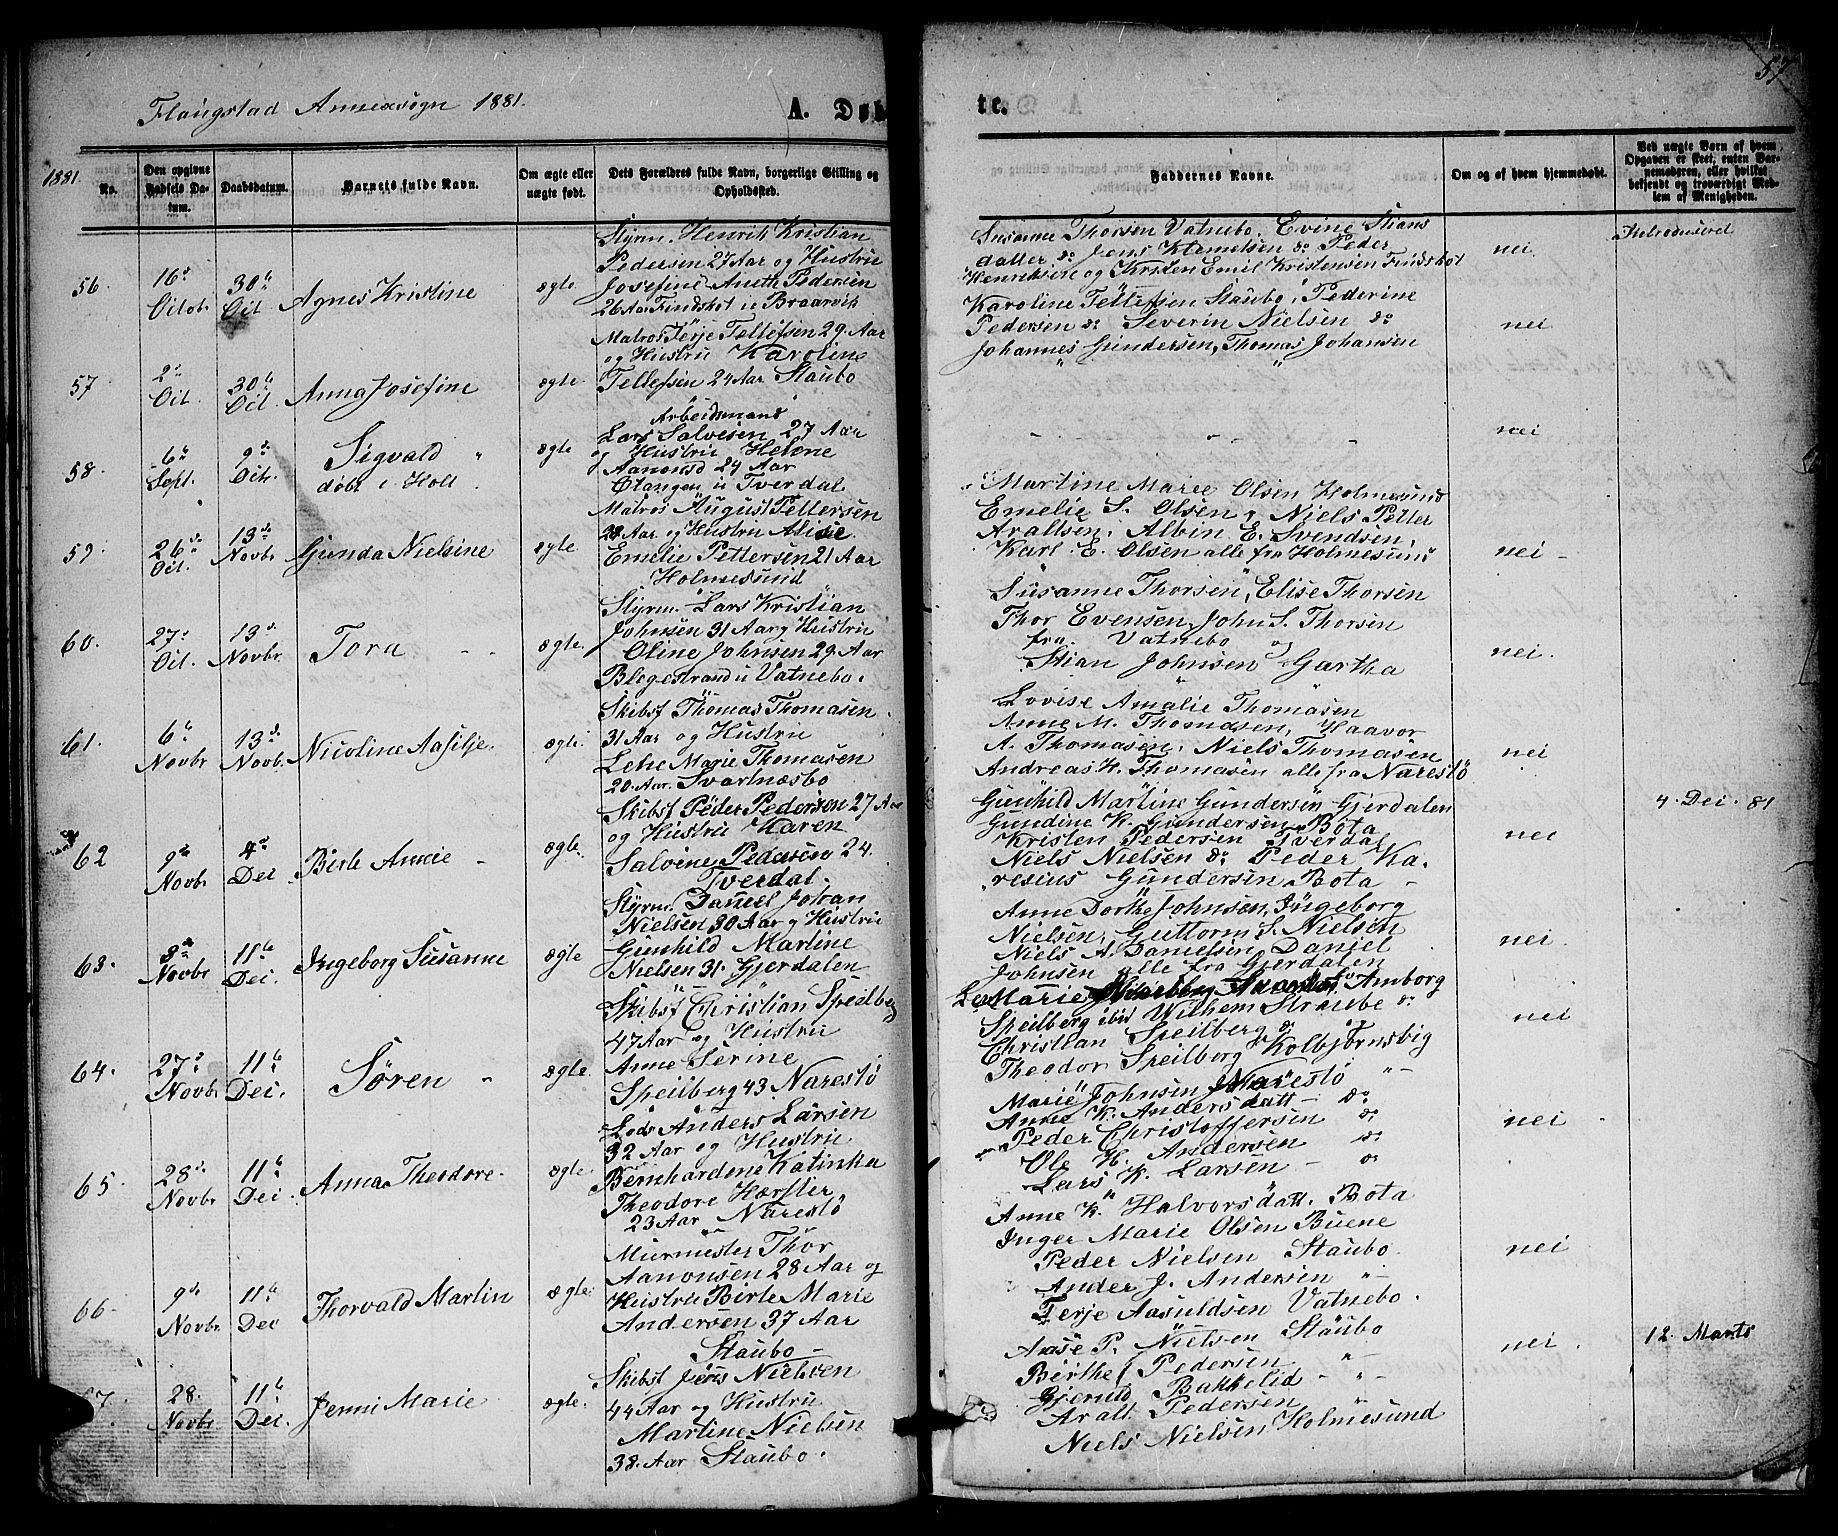 57
Flangstad Annexsogn 1881.
A. Døb
te.
1881.
No.
Den opgivne Fødsels Datum.
Daabsdatum.
Barnets fulde Navn.
Om ægte eller uægte født.
Dets Forældres fulde Navn, borgerlige Stilling og Opholdssted.
Faddernes Navne.
Om og af hvem hjemmedøbt.
Ved uægte Børn af hvem Opgaven er skeet, enten Barnemoderen, eller hvilket bekjendt og troværdigt Medlem af Menigheden.
56
16de Octobr.
30te Oct.
Agnes Kristine
ægte
Styrm. Henrik Kristian
Pedersen 27 Aar og Hustru
Josefine Aneth Pedersen
26 Aar Findsbot u Braarvik
Susanne Thorsen Vatnebo, Evine Stians
datter do Jens Klemetsen do Peder
Henriksen og Kristen Emil Kristensen Findsbot
nei
Introduseret
57
2den Oct.
30te Oct.
Anna Josefine
ægte.
Matros Terje Tellefsen 29 Aar
og Hustru Karoline
Tellefsen 24 Aar Staubo
Karoline Tellefsen Staubo, Pederine
Pedersen do Severin Nielsen do
Johannes Gundersen, Thomas Johansen
" "
nei
58
6te Sept.
9de Oct.
Sigvald "
døbt i Holt
ægte
Arbeidsmand
Lars Salvesen 27 Aar
og Hustru Helene
Aanonsd 24 Aar
Stangen u Tverdal
nei
59
26de Oct.
13de Novbr
Gunda Nielsine
ægte
Matros August Pettersen
28 Aar og Hustru Alise
Emelie Pettersen 21 Aar
Holmesund
Martine Maree Olsen Holmesund
Emelie S. Olsen, Niels Petter
Araltsen, Albin E. Svendsen,
Karl E. Olsen alle fra Holmesund
nei -
60.
27de Oct.
13de Novbr
Tora - -
ægte.
Styrm. Lars Kristian
Johnsen 31 Aar og Hustru
Oline Johnsen 29 Aar
Blegestrand u Vatnebo.
Susanne Thorsen, Elise Thorsen
Thor Evensen, John S. Thorsen
fra Vatnebo og
Stian Johnsen Gartha
nei.
61.
6te Novbr
13de Novb.
Nicoline Aasilje
ægte
Skibsf Thomas Thomasen
31 Aar og Hustru
Lene Marie Thomasen
20 Aar. Svartnæsbo
Lovise Amalie Thomasen
Anne M. Thomasen, Haavor
A. Thomasen, Niels Thomasen
Andreas H. Thomasen alle fra Narestö
nei
62
9de Novbr
4de Dec
Birte Amcie -
ægte.
Skibsf Peder Pedersen 27 Aar
og Hustru Karen
Salvine Pedersen 24.
Tverdal.
Gunhild Martine Gundersen Gjerdalen
Gundine K. Gundersen Bota
Kristen Pedersen Tverdal
Niels Nielsen do Peder Ka-
resius Gundersen Bota -
nei
4. Dec. 81
63.
3de Novbr
11te Dec.
Ingeborg Susanne
ægte
Styrm. Daniel Johan
Nielsen 30 Aar og Hustru
Gunhild Martine
Nielsen 31. Gjerdalen
Anne Dorthe Johnsen, Ingeborg
Nielsen, Guttorm S. Nielsen
Niels A. Danielsen, Daniel
Johnsen alle fra Gjerdalen
nei.
64.
27de Novbr
11te Dec.
Sören "
ægte.
Skibsf Christian Speilberg
47 Aar og Hustru
Anne Serine
Speilberg 43. Narestö
Marie Amborg
Speilberg ibid Wilhelm Straube do
Christian Speilberg do
Theodor Speilberg Kolbjørnsvig
nei
65.
28de Novbr
11te Dec.
Anna Theodore
ægte.
Lods Anders Larsen
32 Aar og Hustru
Bernhardene Katinka
Theodore Kærsfter
23 Aar Narestö
Marie Johnsen Narestö " -
Anne K. Andersdatt - do
Peder Christoffersen do
Ole H. Andersen do
Lars K. Larsen - do
nei
66
9de Novbr
11te Dec
Thorvald Martin
ægte.
Murmester Thor
Aanonsen 28 Aar og
Hustru Birte Marie
Andersen 37 Aar
Staubo -
Anne K. Halvorsdatt. Bota
Inger Marie Olsen Buene
Peder Nielsen Staubo
Ander J. Andersen " -
Terje Aasuldsen Vatnebo.
nei
67
28. Novbr
11te Dec.
Jenni Marie
ægte.
Skibsf Jens Nielsen
44 Aar og Hustru
Martine Nielsen
38. Aar Staubo.
Aase P. Nielsen Staubo
Berthe J Pedersen " -
Gjerul Bakkelid - " -
Aralt Pedersen
Niels Nielsen Holmesund
nei.
12. Marts